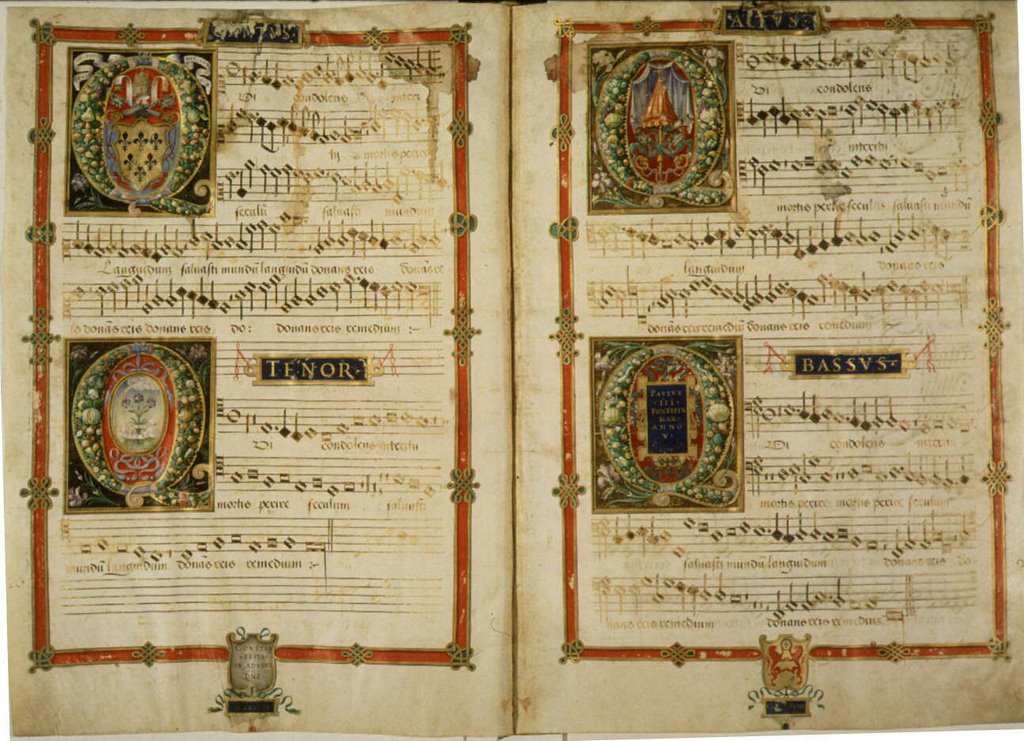 CANTVS
Qui condolens interi
tu mortis perire
seculū salvasti mundum
Languidum salvasti mundū languidū donans reis donās re
is donās reis donans reis do: donans reis remedium :~
TENOR
Qui condolens interitu
mortis perire seculum salvasti
mundū languidum donās reis remedium :~
ALTVS
Qui condolens
interitu
mortis perire seculū salvasti mundū
languidum donans reis
donans reis remediū donans reis remedium
PAVLVS
III
PONTIFEX
MAX
ANNO
V
BASSVS
Qui condolens interitu
mortis perire mortis perire seculum
salvasti mundū languidum donans reis do
nans reis remedium donans reis remediū